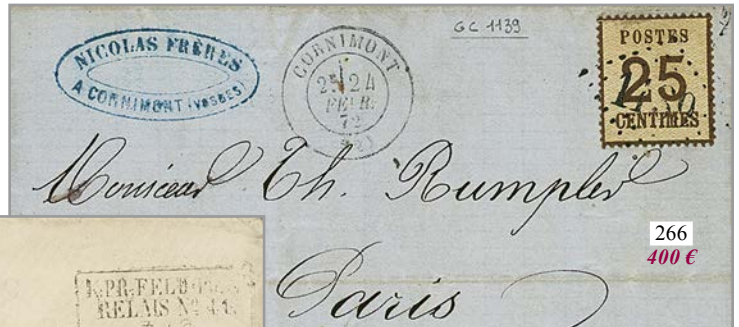 GC 1139
NICOLAS FRÈRES
A CORNIMONT (VOSGES)
CORNIMONT
2E 24
FEVR.
72
POSTES
25
CENTIMES
Monsieur Th. Rumpler
Paris
266
400 €
K.PR.FELD
RELAIS Nº